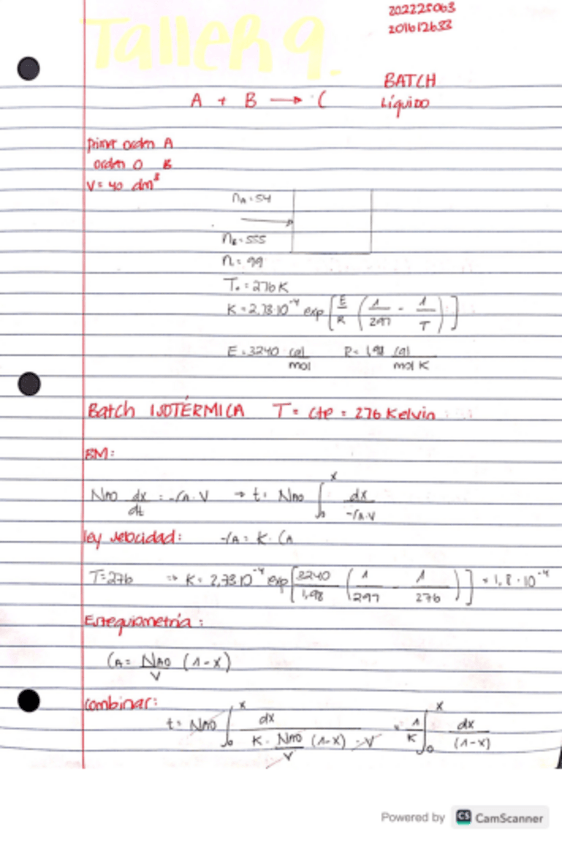 202225063
201612633
Taller 9.
BATCH
A + B → C Líquido
primer orden A
orden 0 B
V = 40 dm³
nA = 54
nB = 555
n = 99
T₀ = 276 K
K = 2,73·10⁻⁴ exp [ E/R ( 1/297 - 1/T ) ]
E = 3240 cal/mol R = 1,98 cal/mol K
Batch ISOTÉRMICA T = cte = 276 Kelvin
BM:
NA0 dx/dt = -rA·V → t = NA0 ∫₀ˣ dx/-rA·V
ley velocidad: -rA = K·CA
T = 276 ⇒ K = 2,73·10⁻⁴ exp [ 3240/1,98 ( 1/297 - 1/276 ) ] = 1,8·10⁻⁴
Estequiometría:
CA = NA0/V (1-x)
combinar:
t = NA0 ∫₀ˣ dx/K·NA0/V (1-x)·V = 1/K ∫₀ˣ dx/(1-x)
Powered by CS CamScanner